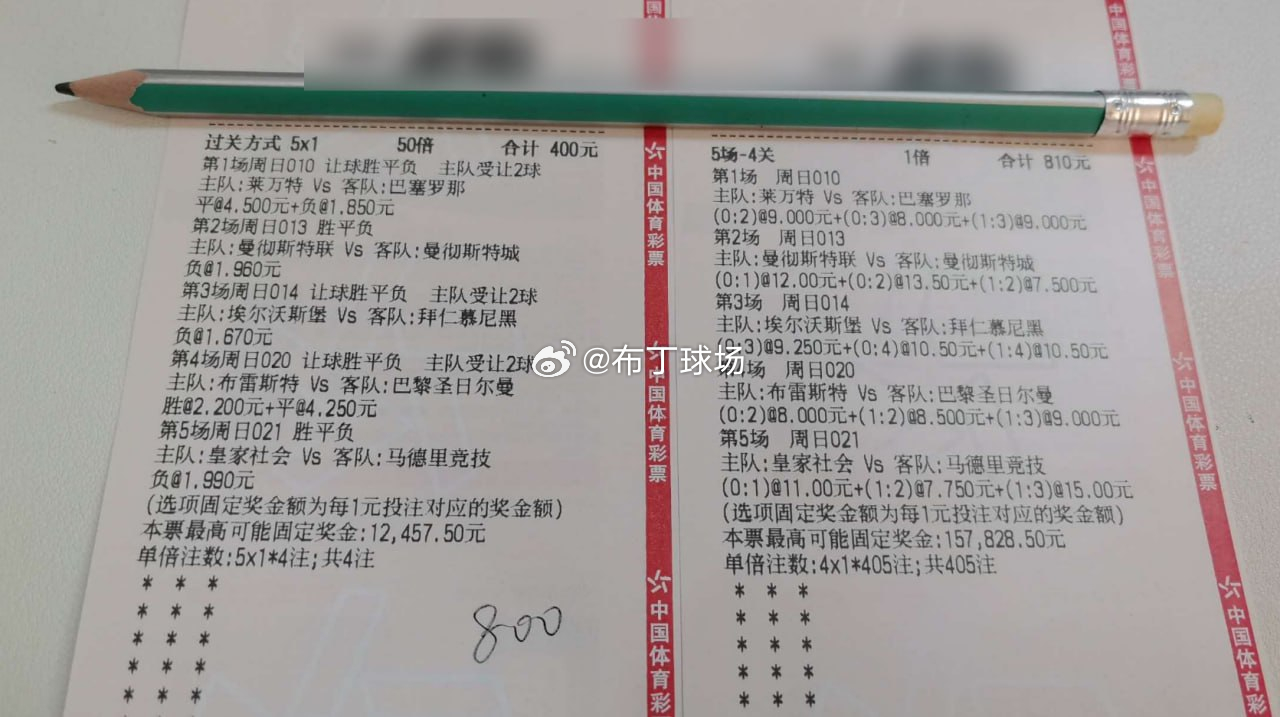 过关方式 5x1 50倍 合计 400元
第1场周日010 让球胜平负 主队受让2球
主队:莱万特 Vs 客队:巴塞罗那
平@4.500元+负@1.850元
第2场周日013 胜平负
主队:曼彻斯特联 Vs 客队:曼彻斯特城
负@1.960元
第3场周日014 让球胜平负 主队受让2球
主队:埃尔沃斯堡 Vs 客队:拜仁慕尼黑
负@1.670元
第4场周日020 让球胜平负 主队受让2球
主队:布雷斯特 Vs 客队:巴黎圣日尔曼
胜@2.200元+平@4.250元
第5场周日021 胜平负
主队:皇家社会 Vs 客队:马德里竞技
负@1.990元
(选项固定奖金额为每1元投注对应的奖金额)
本票最高可能固定奖金:12,457.50元
单倍注数:5x1*4注;共4注
* * *
* * *
* * *
* * *
* * *
800
国体育彩票
中国体育彩票
中国体育彩票
中国体育彩
@布丁球场
5场-4关 1倍 合计 810元
第1场 周日010
主队:莱万特 Vs 客队:巴塞罗那
(0:2)@9.000元+(0:3)@8.000元+(1:3)@9.000元
第2场 周日013
主队:曼彻斯特联 Vs 客队:曼彻斯特城
(0:1)@12.00元+(0:2)@13.50元+(1:2)@7.500元
第3场 周日014
主队:埃尔沃斯堡 Vs 客队:拜仁慕尼黑
:3)@9.250元+(0:4)@10.50元+(1:4)@10.50元
场 周日020
主队:布雷斯特 Vs 客队:巴黎圣日尔曼
(0:2)@8.000元+(1:2)@8.500元+(1:3)@9.000元
第5场 周日021
主队:皇家社会 Vs 客队:马德里竞技
(0:1)@11.00元+(1:2)@7.750元+(1:3)@15.00元
(选项固定奖金额为每1元投注对应的奖金额)
本票最高可能固定奖金:157,828.50元
单倍注数:4x1*405注;共405注
* * *
* * *
* * *
* * *
* * *
中国体育彩
中国体育彩票
中国体育彩票
中国体育彩